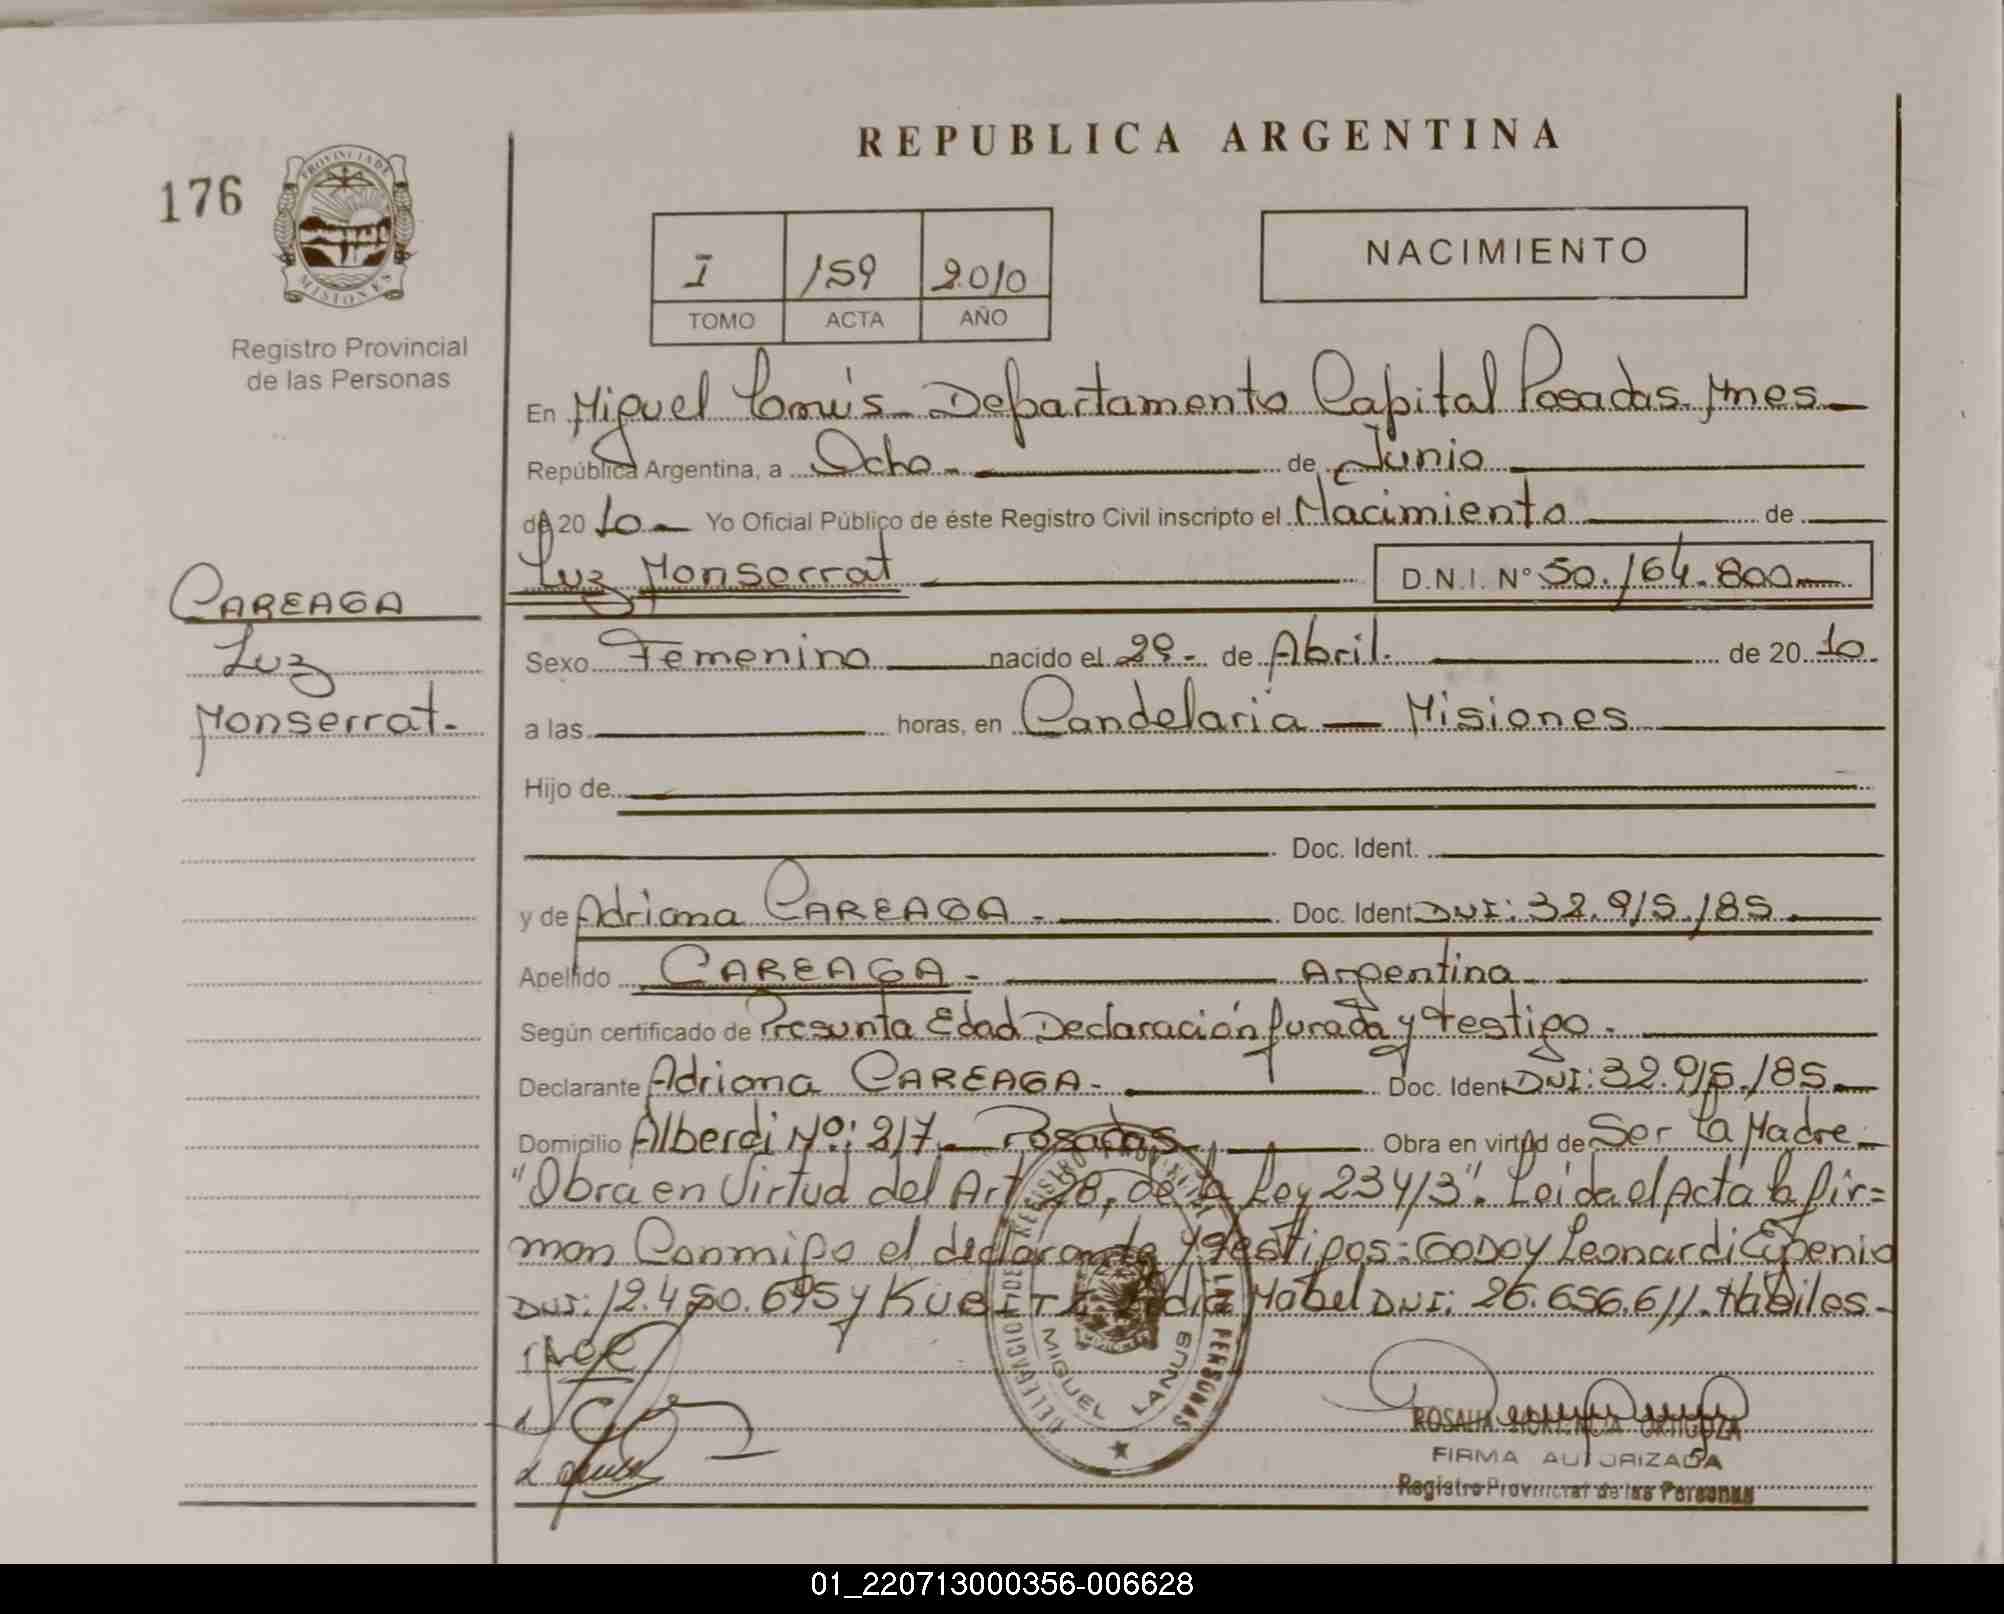 REPUBLICA ARGENTINA
176
PROVINCIA DE
MISIONES
Registro Provincial
de las Personas
I 159 2010
TOMO ACTA AÑO
NACIMIENTO
En Miguel Lanús - Departamento Capital Posadas Mnes -
República Argentina, a Ocho - de Junio
de 20 10 - Yo Oficial Público de éste Registro Civil inscripto el Nacimiento de
Luz Monserrat D.N.I. N° 50.164.800
CAREAGA
Luz
Monserrat.
Sexo Femenino nacido el 29 - de Abril. de 20 10
a las horas, en Candelaria - Misiones
Hijo de
Doc. Ident.
y de Adriana CAREAGA - Doc. Ident DNI: 32.915.185
Apellido CAREAGA - Argentina
Según certificado de Presunta Edad Declaración Jurada y testigo.
Declarante Adriana CAREAGA - Doc. Ident DNI: 32.915.185
Domicilio Alberdi Nº: 217 - Posadas Obra en virtud de Ser La Madre
"Obra en Virtud del Art 28, de la Ley 23413". Leida el Acta la fir=
man Conmigo el declarante y testigos: GODOY Leonardi Eugenio
DNI: 12.450.695 y Mabel DNI: 26.656.611. Habiles -
DELEGACION DE REGISTRO PROVINCIAL DE LAS PERSONAS
MIGUEL LANUS
ROSALIA HORTENCIA ORTIGOZA
FIRMA AUTORIZADA
Registro Provincial de las Personas
01_220713000356-006628